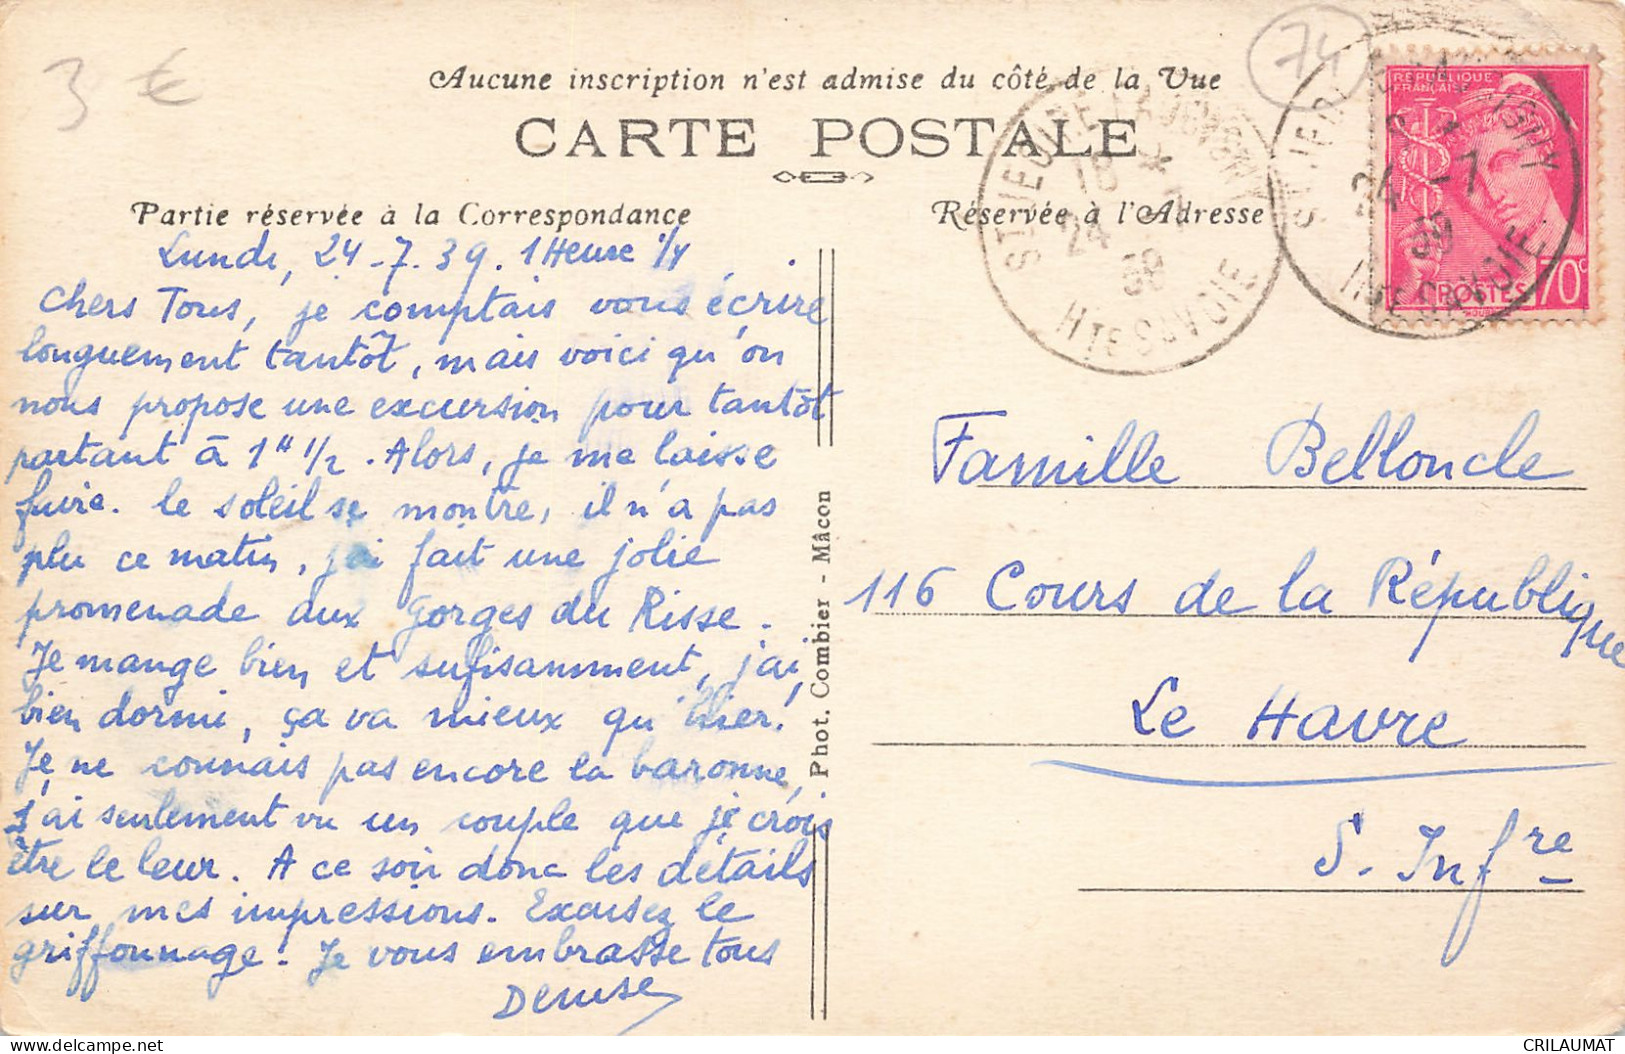 3 €
74
Aucune inscription n'est admise du côté de la Vue
CARTE POSTALE
Partie réservée à la Correspondance
Réservée à l'Adresse
RÉPUBLIQUE
FRANÇAISE
POSTES 70c
18 *
24 7
39
Hte SAVOIE
24 -7
39
Hte SAVOIE
Lundi, 24-7.39. 1 Heure 1/4
Chers Tous, je comptais vous écrire
longuement tantôt, mais voici qu'on
nous propose une excursion pour tantôt
partant à 1H 1/2. Alors, je me laisse
faire. le soleil se montre, il n'a pas
plu ce matin, j'ai fait une jolie
promenade aux Gorges du Risse.
Je mange bien et sufisamment, j'ai
bien dormi, ça va mieux qu'hier!
Je ne connais pas encore la baronne,
j'ai seulement vu un couple que je crois
être le leur. A ce soir donc les détails
sur mes impressions. Excusez le
griffonnage! Je vous embrasse tous
Denise
Phot. Combier - Mâcon
Famille Belloncle
116 Cours de la République
Le Havre
S. Infre
CRILAUMAT